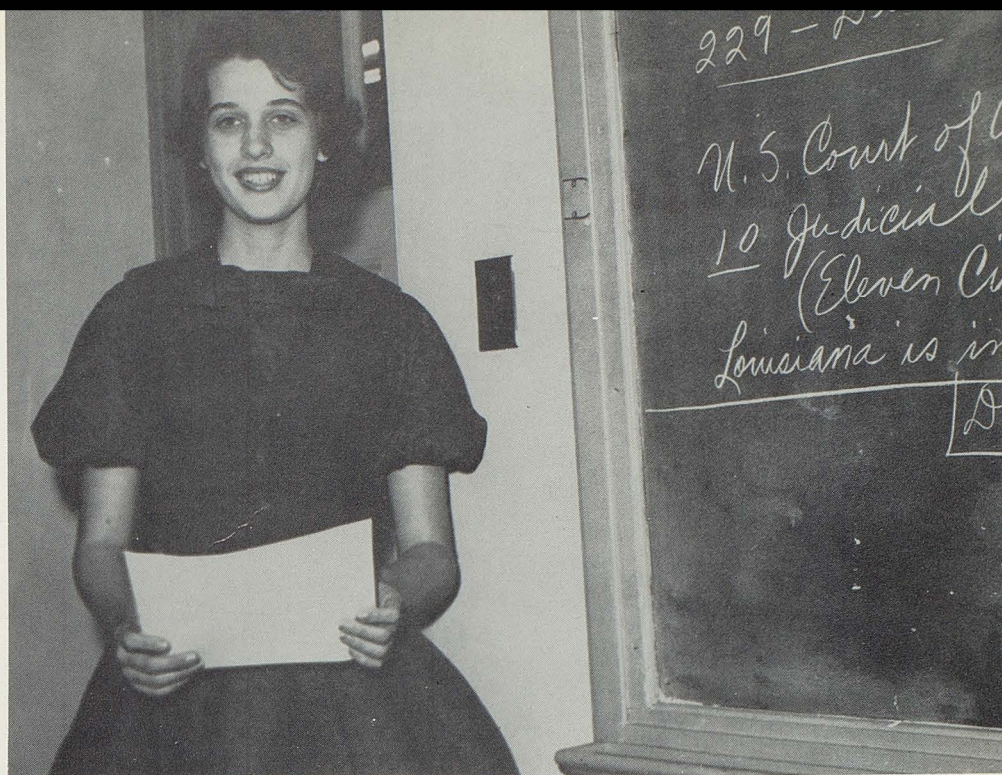 229 –
U.S. Court of
10 Judicial
(Eleven
Louisiana is in